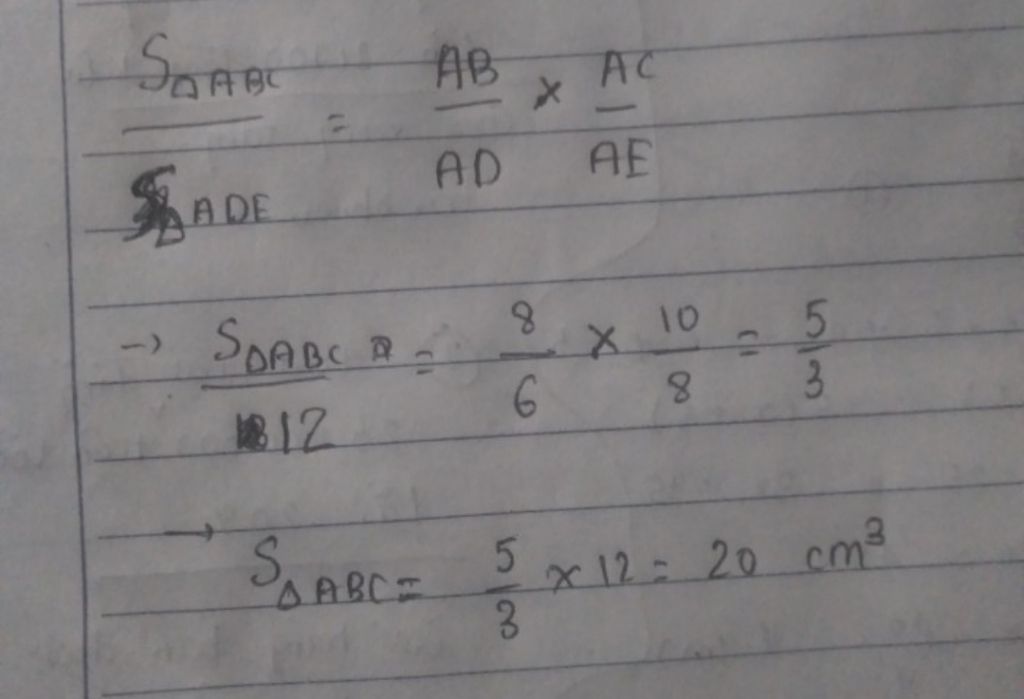 S△ABC / S△ADE = AB / AD × AC / AE
→ S△ABC / 12 = 8 / 6 × 10 / 8 = 5 / 3
→ S△ABC = 5 / 3 × 12 = 20 cm³